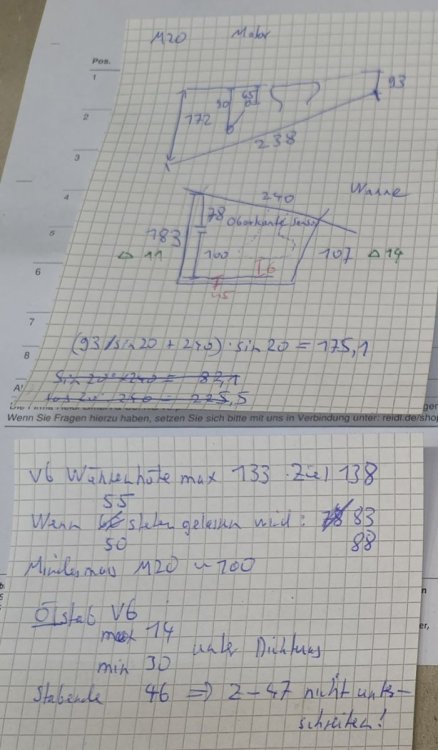 M20 Motor
Pos.
1
2
3
4
5
6
7
8
93
65
50
172
238
240
Wanne
78
Oberkante Sensor
183
△ 11
100
107 △ 14
16
45
(93/sin20 + 240) · sin20 = 175,1
sin20 · 240 = 82,1
cos20 · 240 = 225,5
Wenn Sie Fragen hierzu haben, setzen Sie sich bitte mit uns in Verbindung unter: reidl.de/shop
V6 Wannenhöhe max 133 Ziel 138
55
Wenn stehen gelassen wird: 83
50 88
Mindestmass M20 ~ 100
Ölstab V6
max 14
unter Dichtung
min 30
Stabende 46 => 2-47 nicht unter-
schreiten!